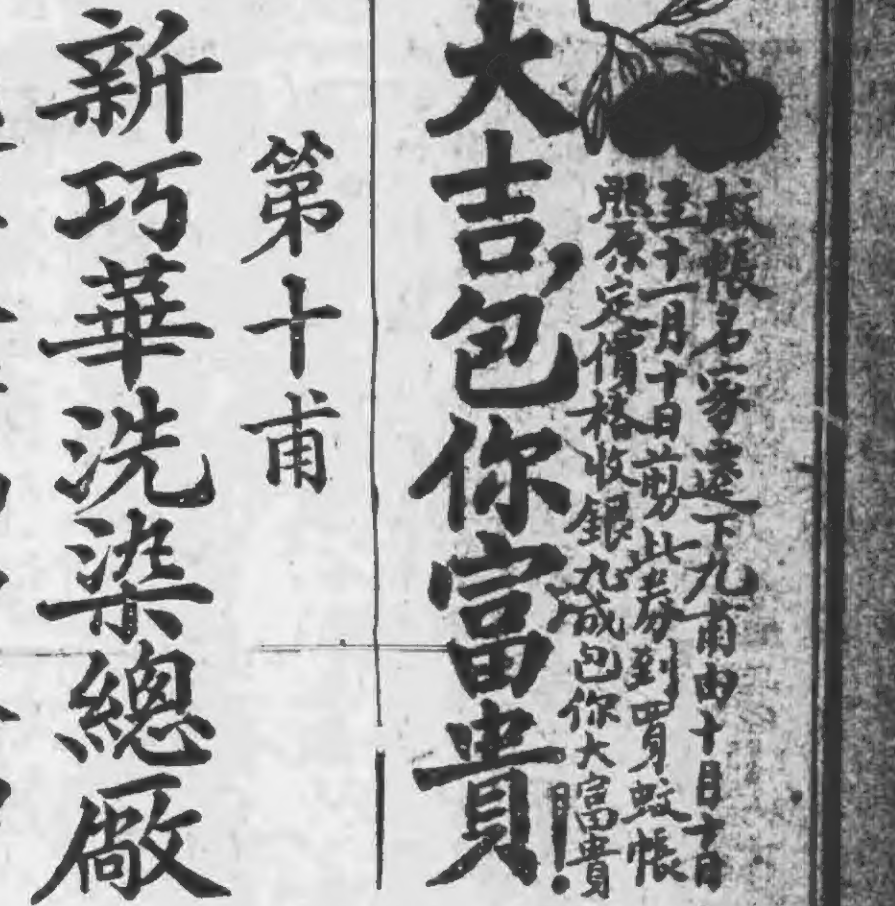 蚊帳名家遷下九甫由十月十日
至十一月十日剪此券到買蚊帳
照原定價格收銀九成包你大富貴
大吉,包你富貴!
第十甫
新巧華洗染總廠